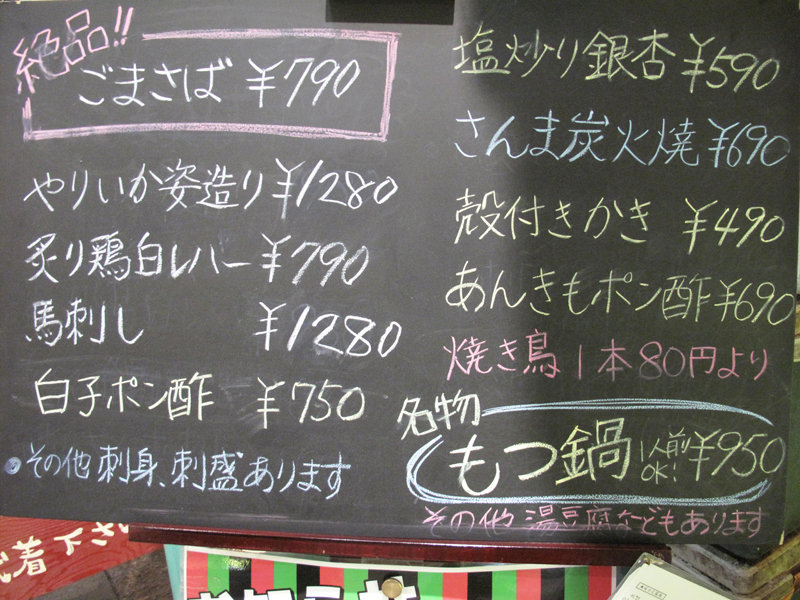 絶品!!
ごまさば ¥790
やりいか姿造り ¥1280
炙り鶏白レバー ¥790
馬刺し ¥1280
白子ポン酢 ¥750
その他 刺身、刺盛あります
塩炒り銀杏 ¥590
さんま炭火焼 ¥690
殻付きかき ¥490
あんきもポン酢 ¥690
焼き鳥 1本80円より
名物
もつ鍋 1人前OK! ¥950
その他 湯豆腐などもあります
着下さい